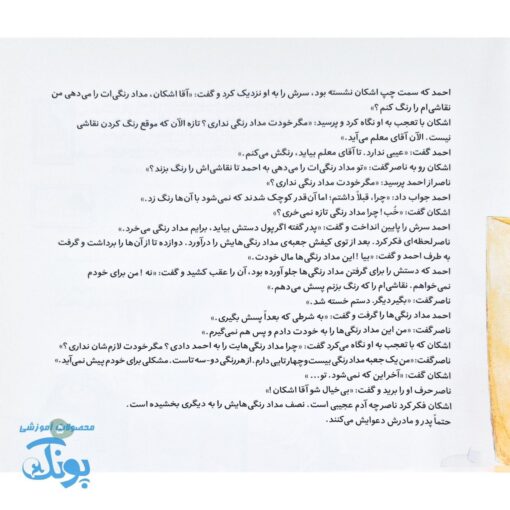 احمد که سمت چپ اشکان نشسته بود، سرش را به او نزدیک کرد و گفت: «آقا اشکان، مداد رنگی‌ات را می‌دهی من
نقاشی‌ام را رنگ کنم؟»
اشکان با تعجب به او نگاه کرد و پرسید: «مگر خودت مداد رنگی نداری؟ تازه الآن که موقع رنگ کردن نقاشی
نیست. الآن آقای معلم می‌آید.»
احمد گفت: «عیبی ندارد. تا آقای معلم بیاید، رنگش می‌کنم.»
اشکان رو به ناصر گفت: «تو مداد رنگی‌ات را می‌دهی به احمد تا نقاشی‌اش را رنگ بزند؟»
ناصر از احمد پرسید: «مگر خودت مداد رنگی نداری؟»
احمد جواب داد: «چرا، قبلاً داشتم؛ اما آن‌قدر کوچک شدند که نمی‌شود با آن‌ها رنگ زد.»
اشکان گفت: «خُب! چرا مداد رنگی تازه نمی‌خری؟»
احمد سرش را پایین انداخت و گفت: «پدر گفته اگر پول دستش بیاید، برایم مداد رنگی می‌خرد.»
ناصر لحظه‌ای فکر کرد. بعد از توی کیفش جعبه‌ی مداد رنگی‌هایش را درآورد. دوازده تا از آن‌ها را برداشت و گرفت
به طرف احمد و گفت: «بیا! این مداد رنگی‌ها مال خودت.»
احمد که دستش را برای گرفتن مداد رنگی‌ها جلو آورده بود، آن را عقب کشید و گفت: «نه! من برای خودم
نمی‌خواهم. نقاشی‌ام را که رنگ بزنم پسش می‌دهم.»
ناصر گفت: «بگیر دیگر. دستم خسته شد.»
احمد مداد رنگی‌ها را گرفت و گفت: «به شرطی که بعداً پسش بگیری.»
ناصر گفت: «من این مداد رنگی‌ها را به خودت دادم و پس هم نمی‌گیرم.»
اشکان که با تعجب به او نگاه می‌کرد گفت: «چرا مداد رنگی‌هایت را به احمد دادی؟ مگر خودت لازم‌شان نداری؟»
ناصر گفت: «من یک جعبه مداد رنگی بیست و چهارتایی دارم. از هر رنگی دو-سه تاست. مشکلی برای خودم پیش نمی‌آید.»
اشکان گفت: «آخر این که نمی‌شود. تو...»
ناصر حرف او را برید و گفت: «بی‌خیال شو آقا اشکان!»
اشکان فکر کرد ناصر چه آدم عجیبی است. نصف مداد رنگی‌هایش را به دیگری بخشیده است.
حتماً پدر و مادرش دعوایش می‌کنند.
محصولات آموزشی
پونک